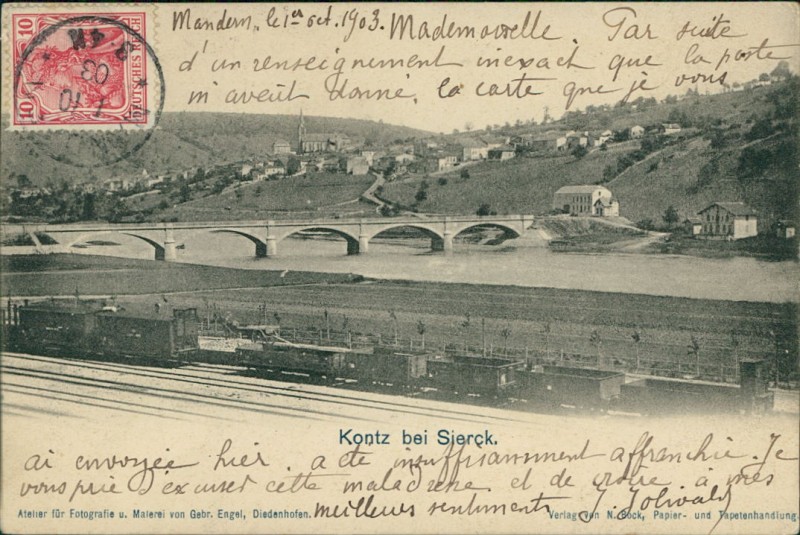 10 10
DEUTSCHES REICH
10 10
Mandern, le 1er oct. 1903. Mademoiselle. Par suite
d'un renseignement inexact que la poste
m'aveut donné, la carte que je vous
Kontz bei Sierck.
ai envoyée hier. a été insuffisamment affranchie. Je
vous prie d'excuser cette maladresse et de croire à mes
meilleurs sentiments
Atelier für Fotografie u. Malerei von Gebr. Engel, Diedenhofen.
Verlag von N. Bock, Papier- und Tapetenhandlung.